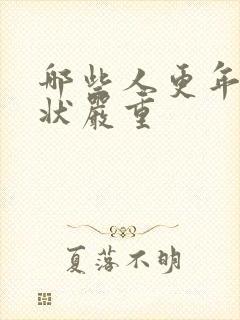 哪些人更年
状嚴重
夏落不明